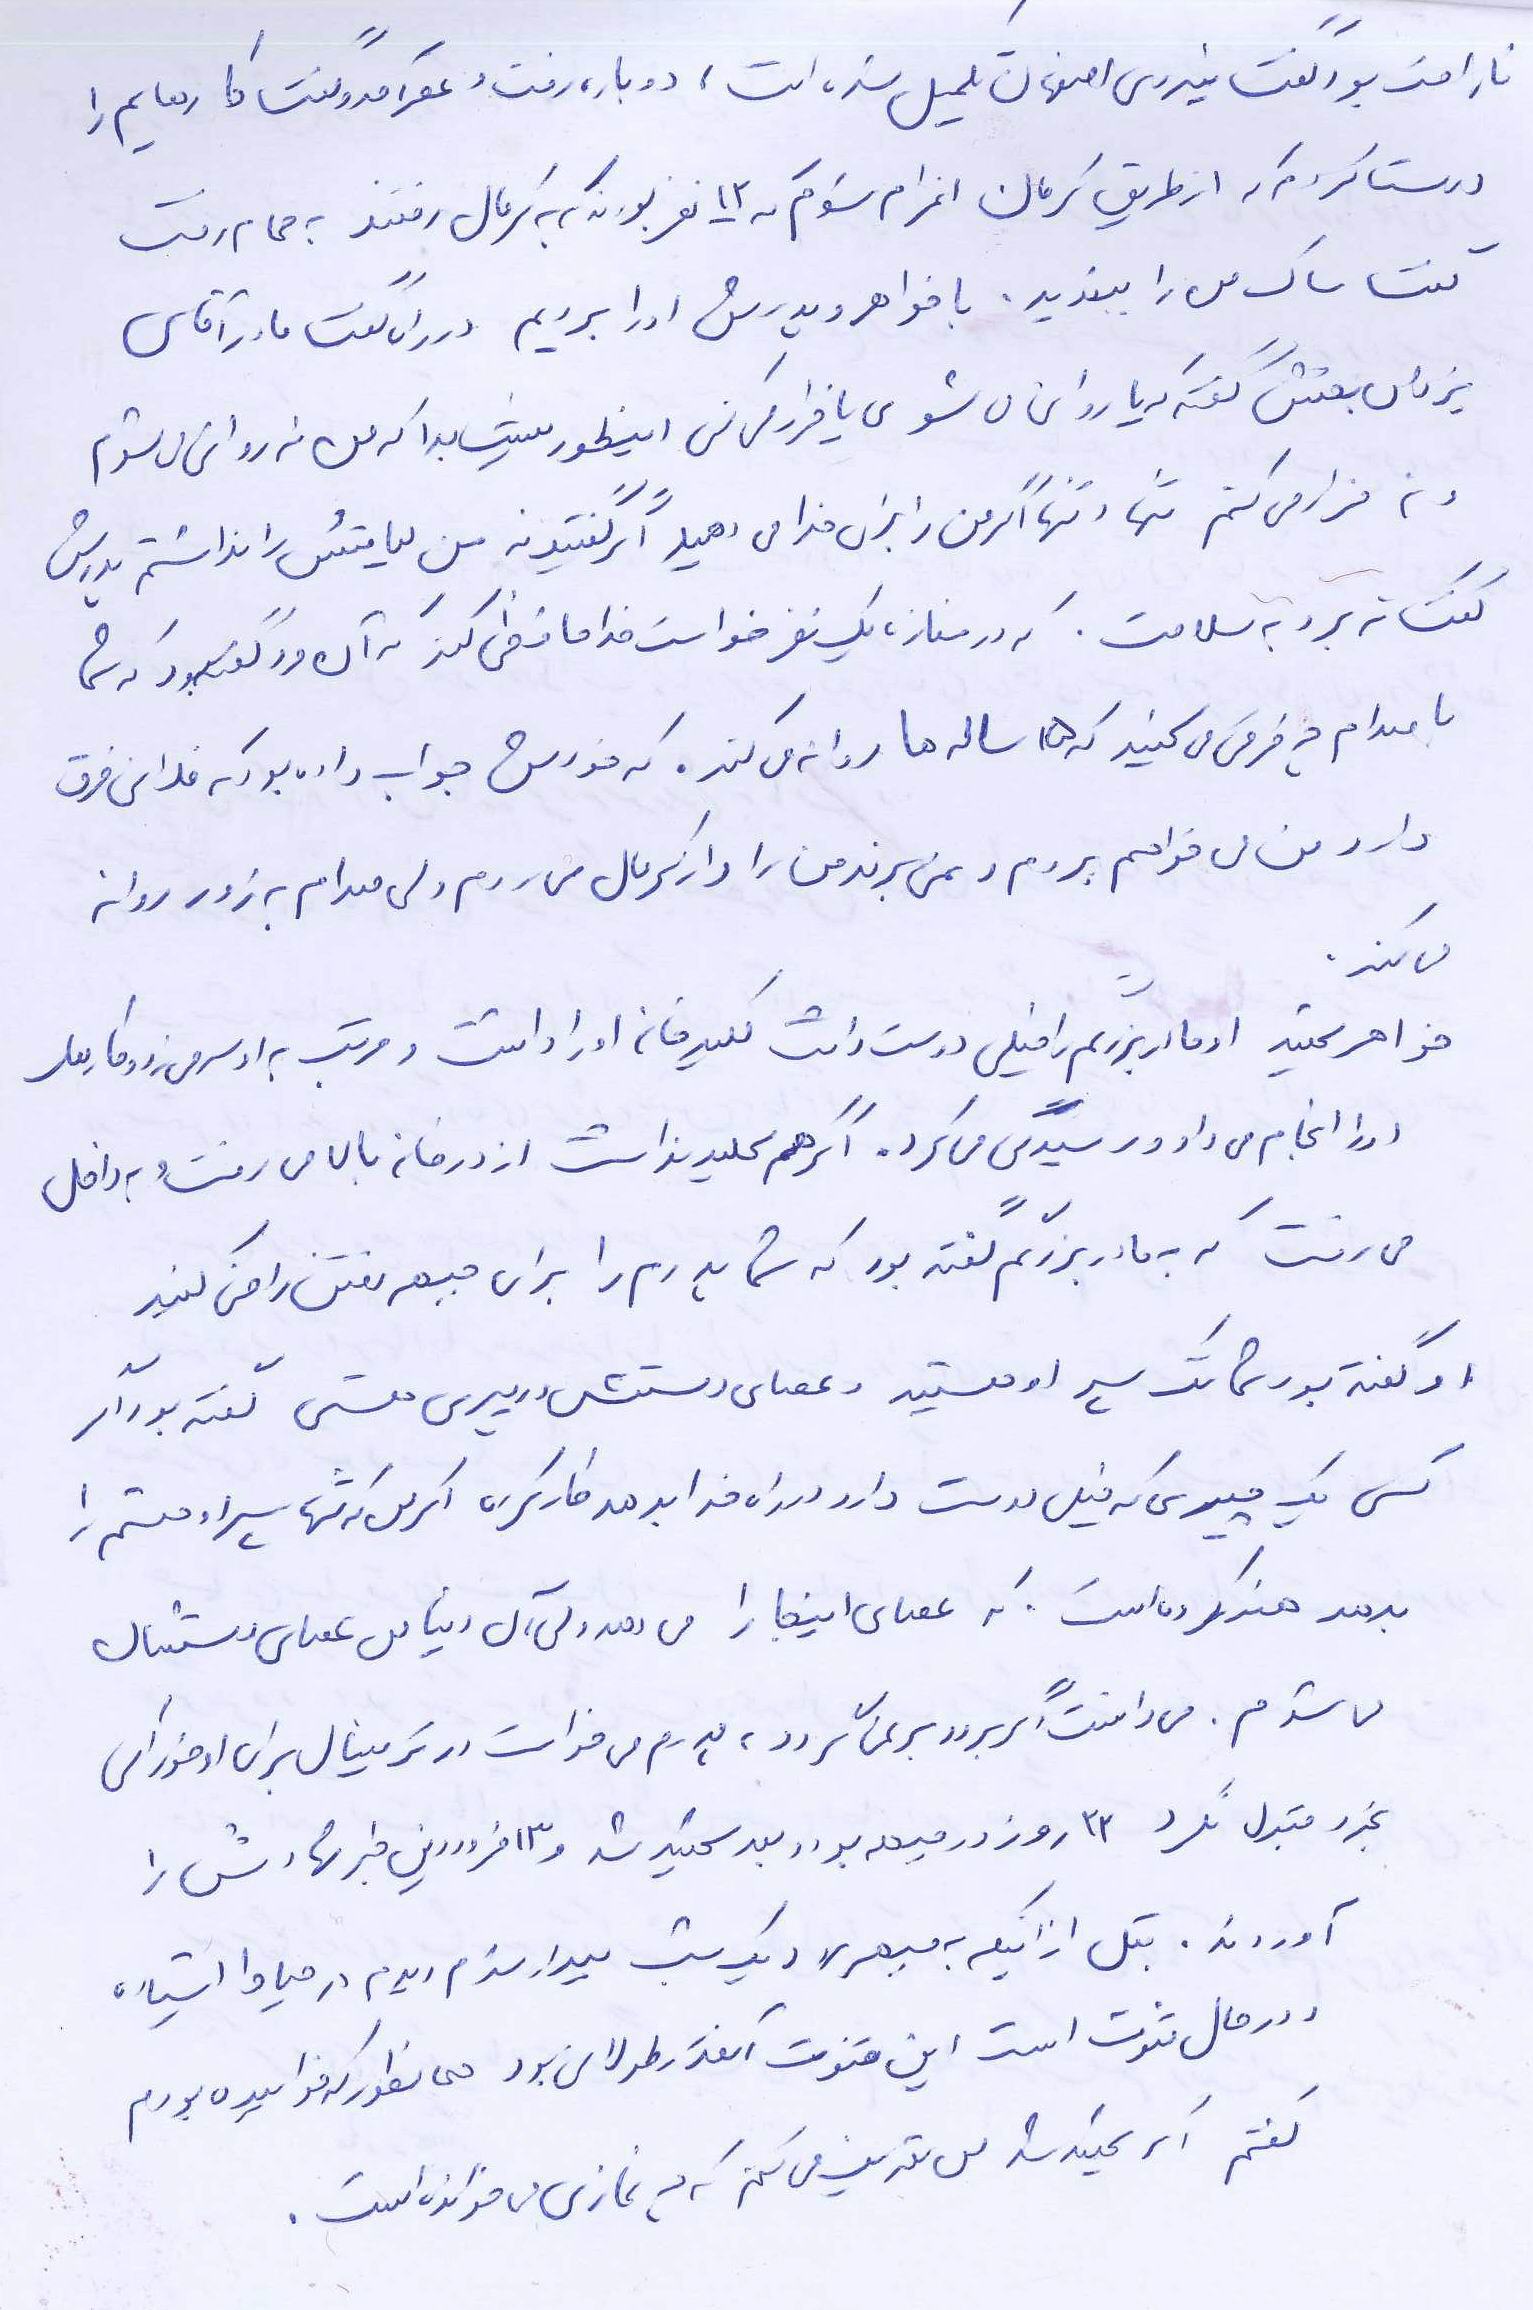 ناراحت بود گفت نیروی اصفهان تکمیل شده است، دوباره رفت و عصر آمد و گفت کارهایم را
درست کردم که از طریق کرمان اعزام شوم که ۱۲ نفر بودند که به کرمان رفتند به حمام رفت
گفت ساک من را ببندید. با خواهر و پدرش او را بردیم در راه گفت مادر آقای
یزدان بخش گفته که یا روانی می شوی یا فرار می کنی اینطور نیست بدا که من نه روانی می شوم
و نه فرار می کنم تنها و تنها اگر من را برای خدا می دهید اگر گفتید نه من لیاقتش را نداشتم پدرش
گفت نه برو به سلامت. که در مغازه یک نفر خواست خداحافظی کند که آن مرد گفته بود که شما
با صدام چه فرقی می کنید که ۱۵ ساله ها روانه می کند. که خودش جواب داده بود که خدایی فرق
دارد من می خواهم بروم و نمی برند من را و از کرمان می روم ولی صدام به زور روانه
می کند.
خواهر شهید او مادربزرگم را خیلی دوست داشت کلید خانه او را داشت و مرتب به او سر می زد و کارهای
او را انجام می داد و رسیدگی می کرد. اگر هم کلید نداشت از در خانه بالا می رفت و به داخل
می رفت که به مادربزرگم گفته بود که شما پدرم را برای جبهه رفتن راضی کنید
او گفته بود شما تک پسر او هستید و عصای دستش در پیری هستی گفته بود اگر
کسی یک چیزی که خیلی دوست دارد در راه خدا بدهد کار کرده اگر من که تنها پسر او هستم را
بدهد هنر کرده است. که عصای اینجا را می دهد ولی آن دنیا من عصای دستشان
می شوم. می دانست اگر برود بر نمی گردد، پدرم می خواست در ترمینال برای او خوراکی
بخرد قبول نکرد ۳۳ روز در جبهه بود و بعد شهید شد و ۱۳ فروردین خبر شهادتش را
آوردند. قبل از اینکه به جبهه برود یک شب بیدار شدم دیدم در حیاط ایستاده
و در حال قنوت است این قنوت آنقدر طولانی بود همانطور که خوابیده بودم
گفتم اگر شهید شد من تعریف می کنم که چه نمازی می خوانده است.